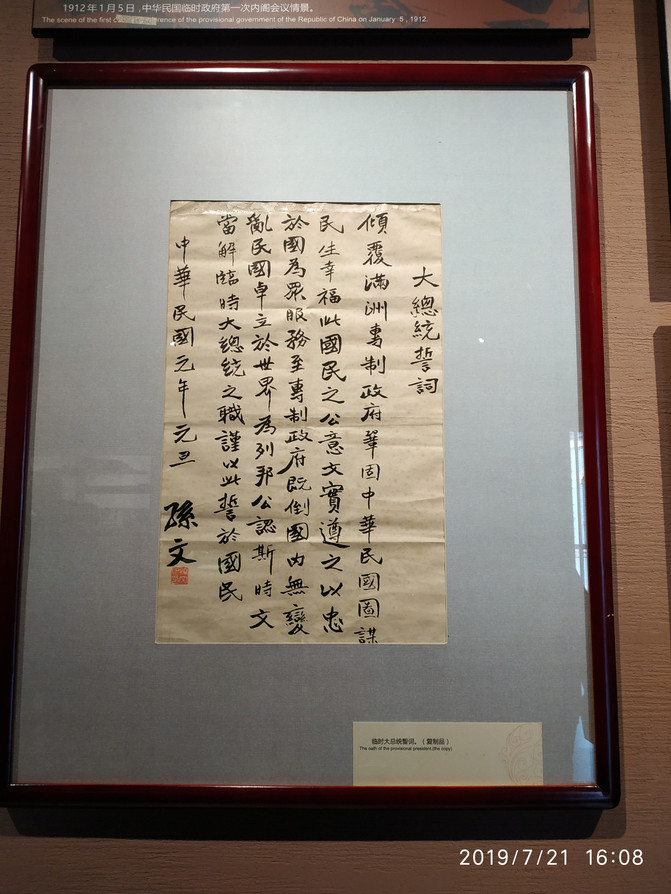 1912年1月5日,中华民国临时政府第一次内阁会议情景。
The scene of the first of the provisional government of the Republic of China on January 5, 1912.
大總統誓詞
傾覆滿洲專制政府鞏固中華民國圖謀
民生幸福此國民之公意文實遵之以忠
於國為眾服務至專制政府既倒國內無變
亂民國卓立於世界為列邦公認斯時文
當解臨時大總統之職謹以此誓於國民
中華民國元年元旦
孫文
临时大总统誓词。(复制品)
The oath of the provisional president.(the copy)
2019/7/21 16:08